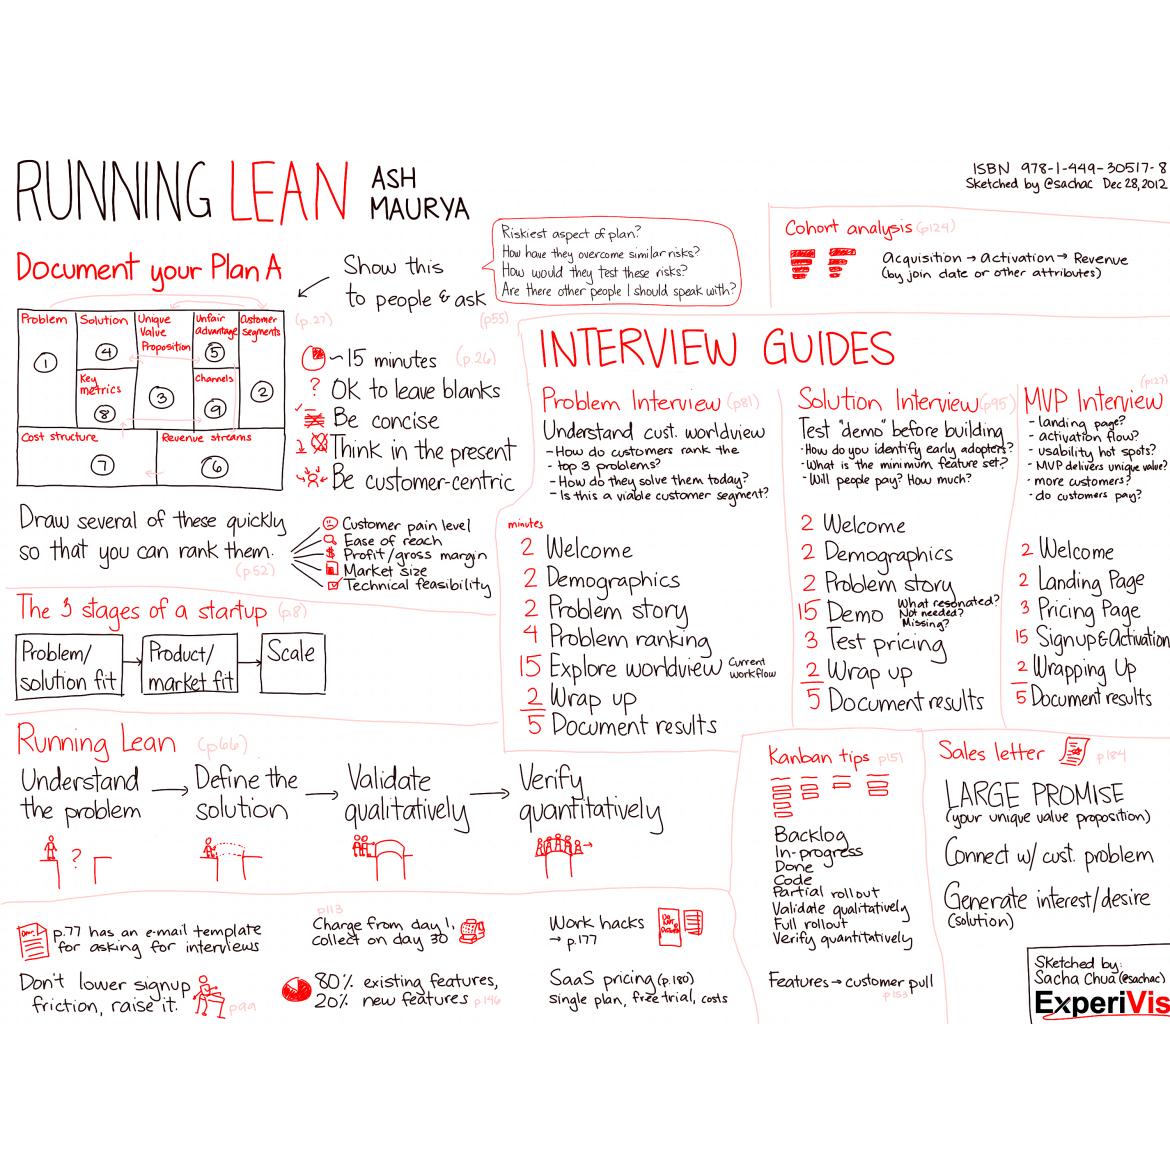 RUNNING LEAN
ASH
MAURYA
ISBN 978-1-449-30517-8
Sketched by @sachac Dec 28, 2012
Document your Plan A
Problem
1
Solution
4
Key
metrics
8
Unique
Value
Proposition
3
Unfair
advantage
5
Channels
9
Customer
segments
2
Cost structure
7
Revenue streams
6
Show this
to people & ask
(p.27)
(p55)
Riskiest aspect of plan?
How have they overcome similar risks?
How would they test these risks?
Are there other people I should speak with?
~15 minutes (p.26)
? OK to leave blanks
Be concise
Think in the present
Be customer-centric
Draw several of these quickly
so that you can rank them.
(p52)
Customer pain level
Ease of reach
$ Profit/gross margin
Market size
Technical feasibility
The 3 stages of a startup (p.8)
Problem/
solution fit
Product/
market fit
Scale
Cohort analysis (p124)
Acquisition → Activation → Revenue
(by join date or other attributes)
INTERVIEW GUIDES
Problem Interview (p81)
Understand cust. worldview
- How do customers rank the
- top 3 problems?
- How do they solve them today?
- Is this a viable customer segment?
minutes
2 Welcome
2 Demographics
2 Problem story
4 Problem ranking
15 Explore worldview Current
workflow
2 Wrap up
5 Document results
Solution Interview (p95)
Test "demo" before building
-How do you identify early adopters?
-What is the minimum feature set?
- Will people pay? How much?
2 Welcome
2 Demographics
2 Problem story
15 Demo What resonated?
Not needed?
Missing?
3 Test pricing
2 Wrap up
5 Document results
(p127)
MVP Interview
- landing page?
- activation flow?
- usability hot spots?
- MVP delivers unique value?
- more customers?
- do customers pay?
2 Welcome
2 Landing Page
3 Pricing Page
15 Signup&Activation
2 Wrapping Up
5 Document results
Running Lean (p66)
Understand
the problem
→ Define the
solution
→ Validate
qualitatively
→ Verify
quantitatively
?
p.77 has an e-mail template
for asking for interviews
Don't lower signup
friction, raise it. p99
p113
Charge from day 1,
collect on day 30
80% existing features,
20% new features p146
Work hacks
→ p.177
SaaS pricing (p.180)
single plan, free trial, costs
Kanban tips p151
Backlog
In-progress
Done
Code
Partial rollout
Validate qualitatively
Full rollout
Verify quantitatively
Features → customer pull
p153
Sales letter p184
LARGE PROMISE
(your unique value proposition)
Connect w/ cust. problem
Generate interest/desire
(solution)
Sketched by:
Sacha Chua (@sachac)
ExperiVis